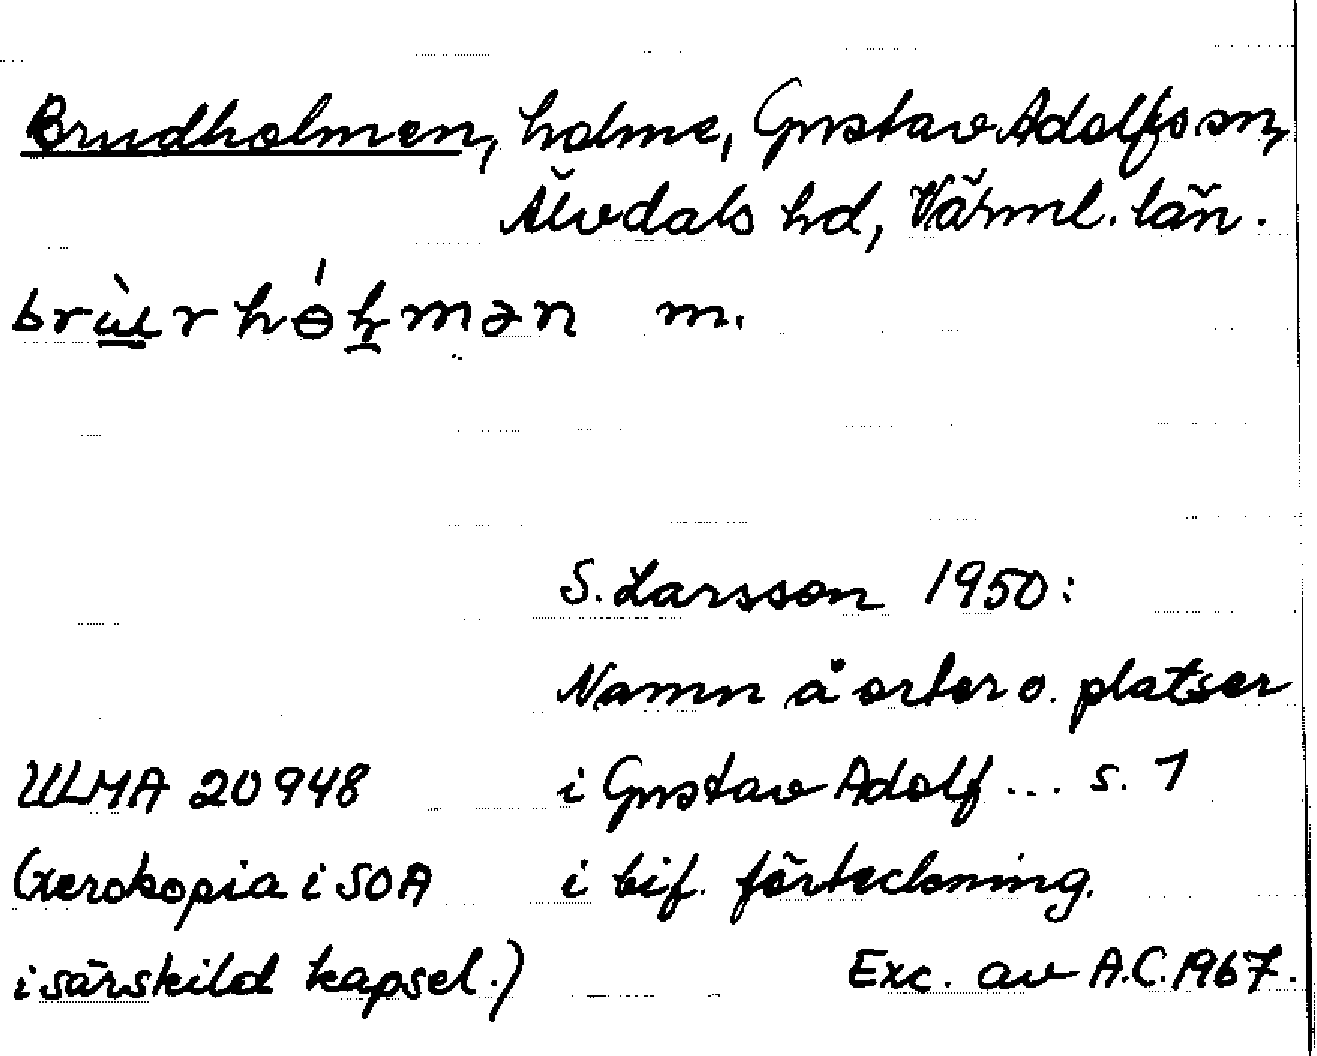 Brudholmen, holme, Gustav Adolfs sn,
Älvdals hd, Värml. län.
m.
S. Larsson 1950:
Namn å orter o. platser
ULMA 20948 i Gustav Adolf ... s. 1
(Xerokopia i SOA i bif. förteckning.
i särskild kapsel.) Exc. av A.C. 1967.